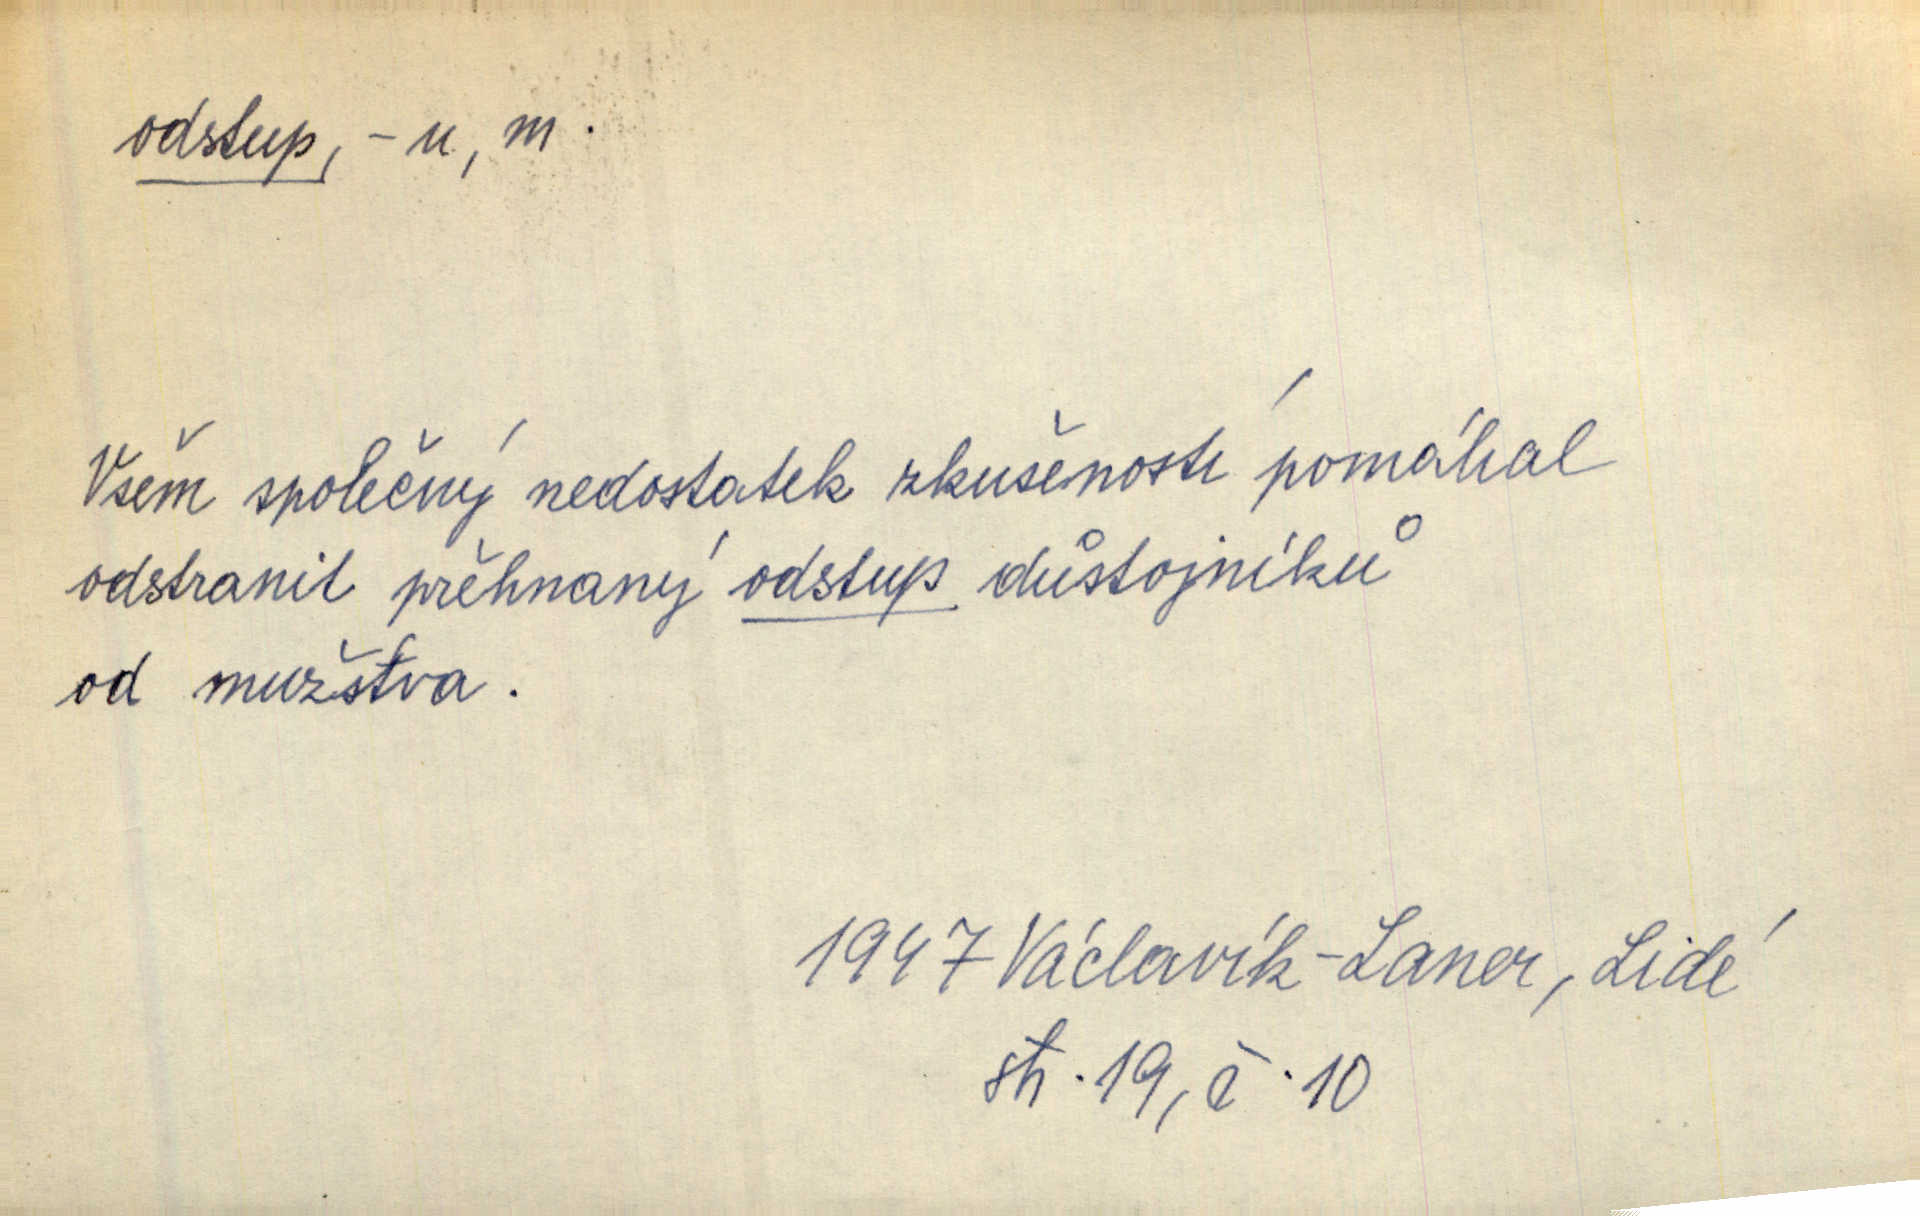 odstup, -u, m.
Všem společný nedostatek zkušeností pomáhal
odstranit přěhnaný odstup důstojníků
od mužstva.
1947 Václavík-Laner, Lidé
str. 19, č. 10